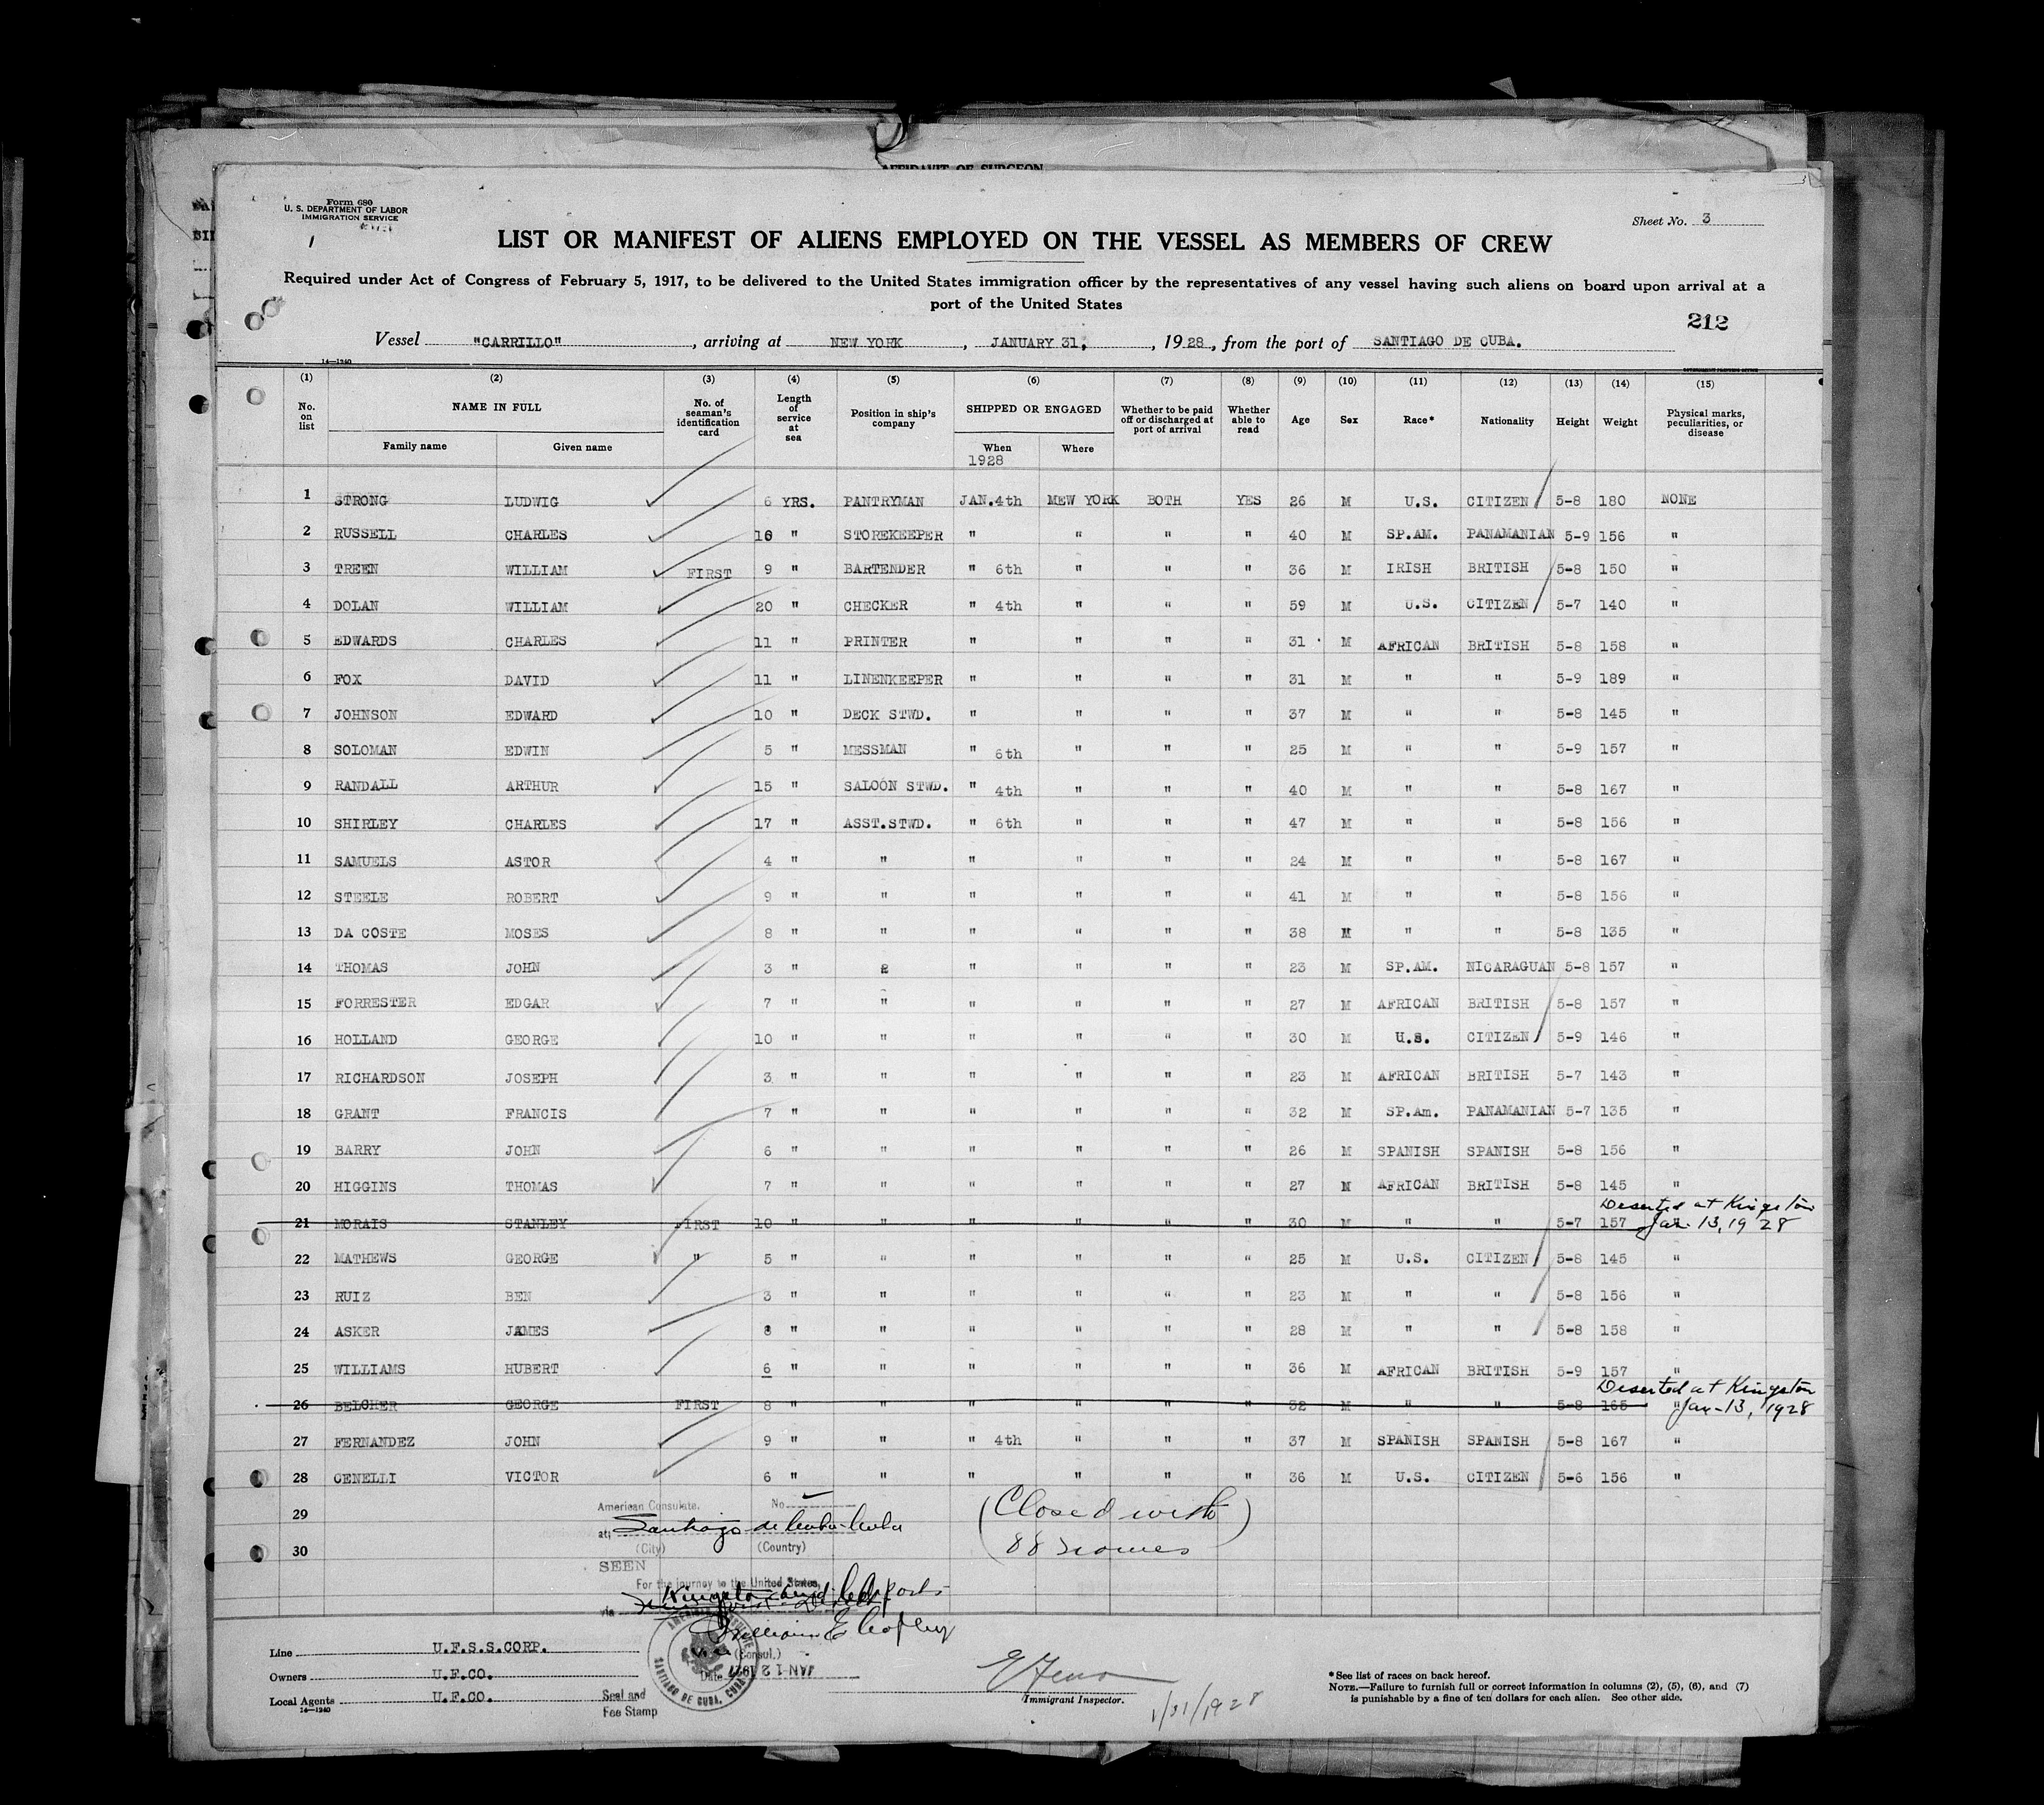 AFFIDAVIT OF SURGEON
Form 680
U. S. DEPARTMENT OF LABOR
IMMIGRATION SERVICE
Sheet No. 3
LIST OR MANIFEST OF ALIENS EMPLOYED ON THE VESSEL AS MEMBERS OF CREW
Required under Act of Congress of February 5, 1917, to be delivered to the United States immigration officer by the representatives of any vessel having such aliens on board upon arrival at a
port of the United States
212
Vessel "CARRILLO", arriving at NEW YORK, JANUARY 31, , 1928, from the port of SANTIAGO DE CUBA.
14—1240
(1) (2) (3) (4) (5) (6) (7) (8) (9) (10) (11) (12) (13) (14) (15)
No. on list NAME IN FULL Family name Given name No. of seaman's identification card Length of service at sea Position in ship's company SHIPPED OR ENGAGED When Where Whether to be paid off or discharged at port of arrival Whether able to read Age Sex Race* Nationality Height Weight Physical marks, peculiarities, or disease
1928
1 STRONG LUDWIG 6 YRS. PANTRYMAN JAN.4th MEW YORK BOTH YES 26 M U.S. CITIZEN 5-8 180 NONE
2 RUSSELL CHARLES 10 " STOREKEEPER " " " " 40 M SP.AM. PANAMANIAN 5-9 156 "
3 TREEN WILLIAM FIRST 9 " BARTENDER " 6th " " " 36 M IRISH BRITISH 5-8 150 "
4 DOLAN WILLIAM 20 " CHECKER " 4th " " " 59 M U.S. CITIZEN 5-7 140 "
5 EDWARDS CHARLES 11 " PRINTER " " " " 31 M AFRICAN BRITISH 5-8 158 "
6 FOX DAVID 11 " LINENKEEPER " " " " 31 M " " 5-9 189 "
7 JOHNSON EDWARD 10 " DECK STWD. " " " " 37 M " " 5-8 145 "
8 SOLOMAN EDWIN 5 " MESSMAN " 6th " " " 25 M " " 5-9 157 "
9 RANDALL ARTHUR 15 " SALOON STWD. " 4th " " " 40 M " " 5-8 167 "
10 SHIRLEY CHARLES 17 " ASST.STWD. " 6th " " " 47 M " " 5-8 156 "
11 SAMUELS ASTOR 4 " " " " " " 24 M " " 5-8 167 "
12 STEELE ROBERT 9 " " " " " " 41 M " " 5-8 156 "
13 DA COSTE MOSES 8 " " " " " " 38 M " " 5-8 135 "
14 THOMAS JOHN 3 " " " " " 23 M SP.AM. NICARAGUAN 5-8 157 "
15 FORRESTER EDGAR 7 " " " " " " 27 M AFRICAN BRITISH 5-8 157 "
16 HOLLAND GEORGE 10 " " " " " " 30 M U.s. CITIZEN 5-9 146 "
17 RICHARDSON JOSEPH 3 " " " " " " 23 M AFRICAN BRITISH 5-7 143 "
18 GRANT FRANCIS 7 " " " " " " 32 M SP.Am. PANAMANIAN 5-7 135 "
19 BARRY JOHN 6 " " " " " " 26 M SPANISH SPANISH 5-8 156 "
20 HIGGINS THOMAS 7 " " " " " " 27 M AFRICAN BRITISH 5-8 145 "
21 MORAIS STANLEY FIRST 10 " " " " " " 30 M " " 5-7 157 Deserted at Kingston Jan. 13, 1928
22 MATHEWS GEORGE " 5 " " " " " " 25 M U.S. CITIZEN 5-8 145 "
23 RUIZ BEN 3 " " " " " " 23 M " " 5-8 156 "
24 ASKER JAMES 8 " " " " " " 28 M " " 5-8 158 "
25 WILLIAMS HUBERT 6 " " " " " " 36 M AFRICAN BRITISH 5-9 157 "
26 BELCHER GEORGE FIRST 8 " " " " " " 32 M " " 5-8 165 " Deserted at Kingston Jan-13, 1928
27 FERNANDEZ JOHN 9 " " " 4th " " " 37 M SPANISH SPANISH 5-8 167 "
28 GENELLI VICTOR 6 " " " " " " 36 M U.S. CITIZEN 5-6 156 "
29
30
American Consulate. No.
at Santiago de Cuba Cuba
(City) (Country)
(Closed with
88 names)
SEEN
For the journey to the United States,
via Kingston and
(Consul.)
Date JAN 12
AMERICAN CONSULATE SANTIAGO DE CUBA, CUBA
Seal and
Fee Stamp
Line U.F.S.S.CORP.
Owners U.F.CO.
Local Agents U.F.CO.
14—1240
Immigrant Inspector.
1/31/1928
*See list of races on back hereof.
NOTE.—Failure to furnish full or correct information in columns (2), (5), (6), and (7)
is punishable by a fine of ten dollars for each alien. See other side.